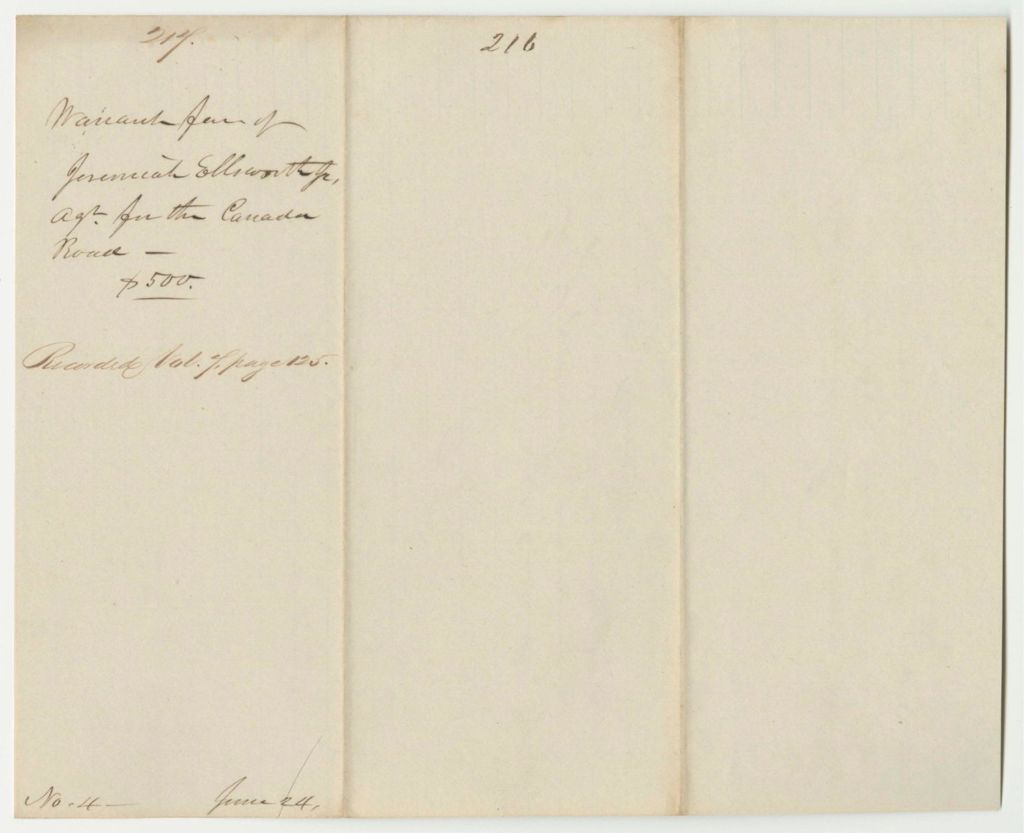 217.
216
Warrant fav. of
Jeremiah Ellsworth Jr,
Agt. for the Canada
Road —
$500.
Recorded Vol. 7. page 125.
No. 4 —
June 24,